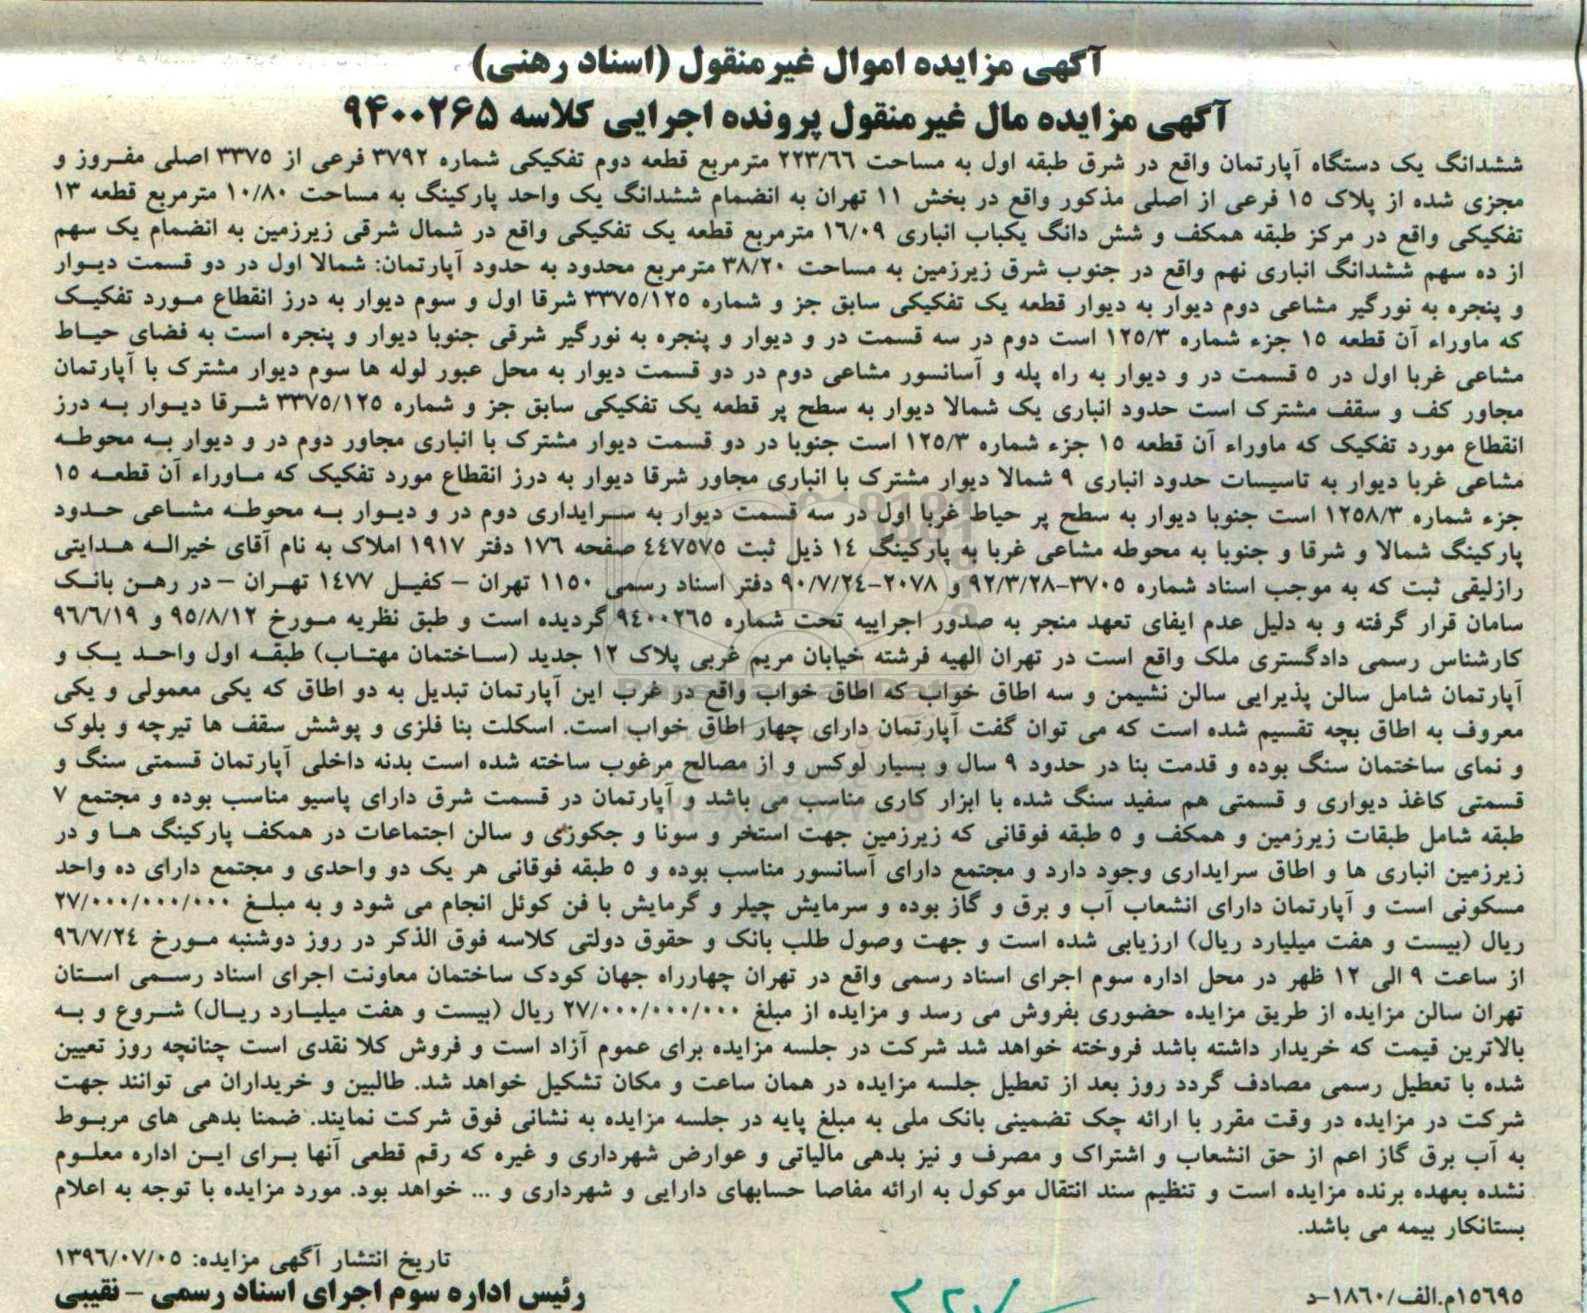 آگهی مزایده اموال غیرمنقول (اسناد رهنی)
آگهی مزایده مال غیرمنقول پرونده اجرایی کلاسه ۹۴۰۰۲۶۵
ششدانگ یک دستگاه آپارتمان واقع در شرق طبقه اول به مساحت ۲۲۳/۶۶ مترمربع قطعه دوم تفکیکی شماره ۳۷۹۲ فرعی از ۳۳۷۵ اصلی مفروز و
مجزی شده از پلاک ۱۵ فرعی از اصلی مذکور واقع در بخش ۱۱ تهران به انضمام ششدانگ یک واحد پارکینگ به مساحت ۱۰/۸۰ مترمربع قطعه ۱۳
تفکیکی واقع در مرکز طبقه همکف و شش دانگ یکباب انباری ۱۶/۰۹ مترمربع قطعه یک تفکیکی واقع در شمال شرقی زیرزمین به انضمام یک سهم
از ده سهم ششدانگ انباری نهم واقع در جنوب شرق زیرزمین به مساحت ۳۸/۲۰ مترمربع محدود به حدود آپارتمان: شمالا اول در دو قسمت دیوار
و پنجره به نورگیر مشاعی دوم دیوار به دیوار قطعه یک تفکیکی سابق جز و شماره ۳۳۷۵/۱۲۵ شرقا اول و سوم دیوار به درز انقطاع مورد تفکیک
که ماوراء آن قطعه ۱۵ جزء شماره ۱۲۵/۳ است دوم در سه قسمت در و دیوار و پنجره به نورگیر شرقی جنوبا دیوار و پنجره است به فضای حیاط
مشاعی غربا اول در ۵ قسمت در و دیوار به راه پله و آسانسور مشاعی دوم در دو قسمت دیوار به محل عبور لوله ها سوم دیوار مشترک با آپارتمان
مجاور کف و سقف مشترک است حدود انباری یک شمالا دیوار به سطح پر قطعه یک تفکیکی سابق جز و شماره ۳۳۷۵/۱۲۵ شرقا دیوار به درز
انقطاع مورد تفکیک که ماوراء آن قطعه ۱۵ جزء شماره ۱۲۵/۳ است جنوبا در دو قسمت دیوار مشترک با انباری مجاور دوم در و دیوار به محوطه
مشاعی غربا دیوار به تاسیسات حدود انباری ۹ شمالا دیوار مشترک با انباری مجاور شرقا دیوار به درز انقطاع مورد تفکیک که ماوراء آن قطعه ۱۵
جزء شماره ۱۲۵۸/۳ است جنوبا دیوار به سطح پر حیاط غربا اول در سه قسمت دیوار به سرایداری دوم در و دیوار به محوطه مشاعی حدود
پارکینگ شمالا و شرقا و جنوبا به محوطه مشاعی غربا به پارکینگ ۱۴ ذیل ثبت ۴۴۷۵۷۵ صفحه ۱۷۶ دفتر ۱۹۱۷ املاک به نام آقای خیراله هدایتی
رازلیقی ثبت که به موجب اسناد شماره ۳۷۰۵-۹۲/۳/۲۸ و ۲۰۷۸-۹۰/۷/۲۴ دفتر اسناد رسمی ۱۱۵۰ تهران – کفیل ۱۴۷۷ تهران – در رهن بانک
سامان قرار گرفته و به دلیل عدم ایفای تعهد منجر به صدور اجراییه تحت شماره ۹۴۰۰۲۶۵ گردیده است و طبق نظریه مورخ ۹۵/۸/۱۲ و ۹۶/۶/۱۹
کارشناس رسمی دادگستری ملک واقع است در تهران الهیه فرشته خیابان مریم غربی پلاک ۱۲ جدید (ساختمان مهتاب) طبقه اول واحد یک و
آپارتمان شامل سالن پذیرایی سالن نشیمن و سه اطاق خواب که اطاق خواب واقع در غرب این آپارتمان تبدیل به دو اطاق که یکی معمولی و یکی
معروف به اطاق بچه تقسیم شده است که می توان گفت آپارتمان دارای چهار اطاق خواب است. اسکلت بنا فلزی و پوشش سقف ها تیرچه و بلوک
و نمای ساختمان سنگ بوده و قدمت بنا در حدود ۹ سال و بسیار لوکس و از مصالح مرغوب ساخته شده است بدنه داخلی آپارتمان قسمتی سنگ و
قسمتی کاغذ دیواری و قسمتی هم سفید سنگ شده با ابزار کاری مناسب می باشد و آپارتمان در قسمت شرق دارای پاسیو مناسب بوده و مجتمع ۷
طبقه شامل طبقات زیرزمین و همکف و ۵ طبقه فوقانی که زیرزمین جهت استخر و سونا و جکوزی و سالن اجتماعات در همکف پارکینگ ها و در
زیرزمین انباری ها و اطاق سرایداری وجود دارد و مجتمع دارای آسانسور مناسب بوده و ۵ طبقه فوقانی هر یک دو واحدی و مجتمع دارای ده واحد
مسکونی است و آپارتمان دارای انشعاب آب و برق و گاز بوده و سرمایش چیلر و گرمایش با فن کوئل انجام می شود و به مبلغ ۲۷/۰۰۰/۰۰۰/۰۰۰
ریال (بیست و هفت میلیارد ریال) ارزیابی شده است و جهت وصول طلب بانک و حقوق دولتی کلاسه فوق الذکر در روز دوشنبه مورخ ۹۶/۷/۲۴
از ساعت ۹ الی ۱۲ ظهر در محل اداره سوم اجرای اسناد رسمی واقع در تهران چهارراه جهان کودک ساختمان معاونت اجرای اسناد رسمی استان
تهران سالن مزایده از طریق مزایده حضوری بفروش می رسد و مزایده از مبلغ ۲۷/۰۰۰/۰۰۰/۰۰۰ ریال (بیست و هفت میلیارد ریال) شروع و به
بالاترین قیمت که خریدار داشته باشد فروخته خواهد شد شرکت در جلسه مزایده برای عموم آزاد است و فروش کلا نقدی است چنانچه روز تعیین
شده با تعطیل رسمی مصادف گردد روز بعد از تعطیل جلسه مزایده در همان ساعت و مکان تشکیل خواهد شد. طالبین و خریداران می توانند جهت
شرکت در مزایده در وقت مقرر با ارائه چک تضمینی بانک ملی به مبلغ پایه در جلسه مزایده به نشانی فوق شرکت نمایند. ضمنا بدهی های مربوط
به آب برق گاز اعم از حق انشعاب و اشتراک و مصرف و نیز بدهی مالیاتی و عوارض شهرداری و غیره که رقم قطعی آنها برای این اداره معلوم
نشده بعهده برنده مزایده است و تنظیم سند انتقال موکول به ارائه مفاصا حسابهای دارایی و شهرداری و ... خواهد بود. مورد مزایده با توجه به اعلام
بستانکار بیمه می باشد.
تاریخ انتشار آگهی مزایده: ۱۳۹۶/۰۷/۰۵
رئیس اداره سوم اجرای اسناد رسمی – نقیبی
۱۵۶۹۵م.الف/۱۸۶۰-د